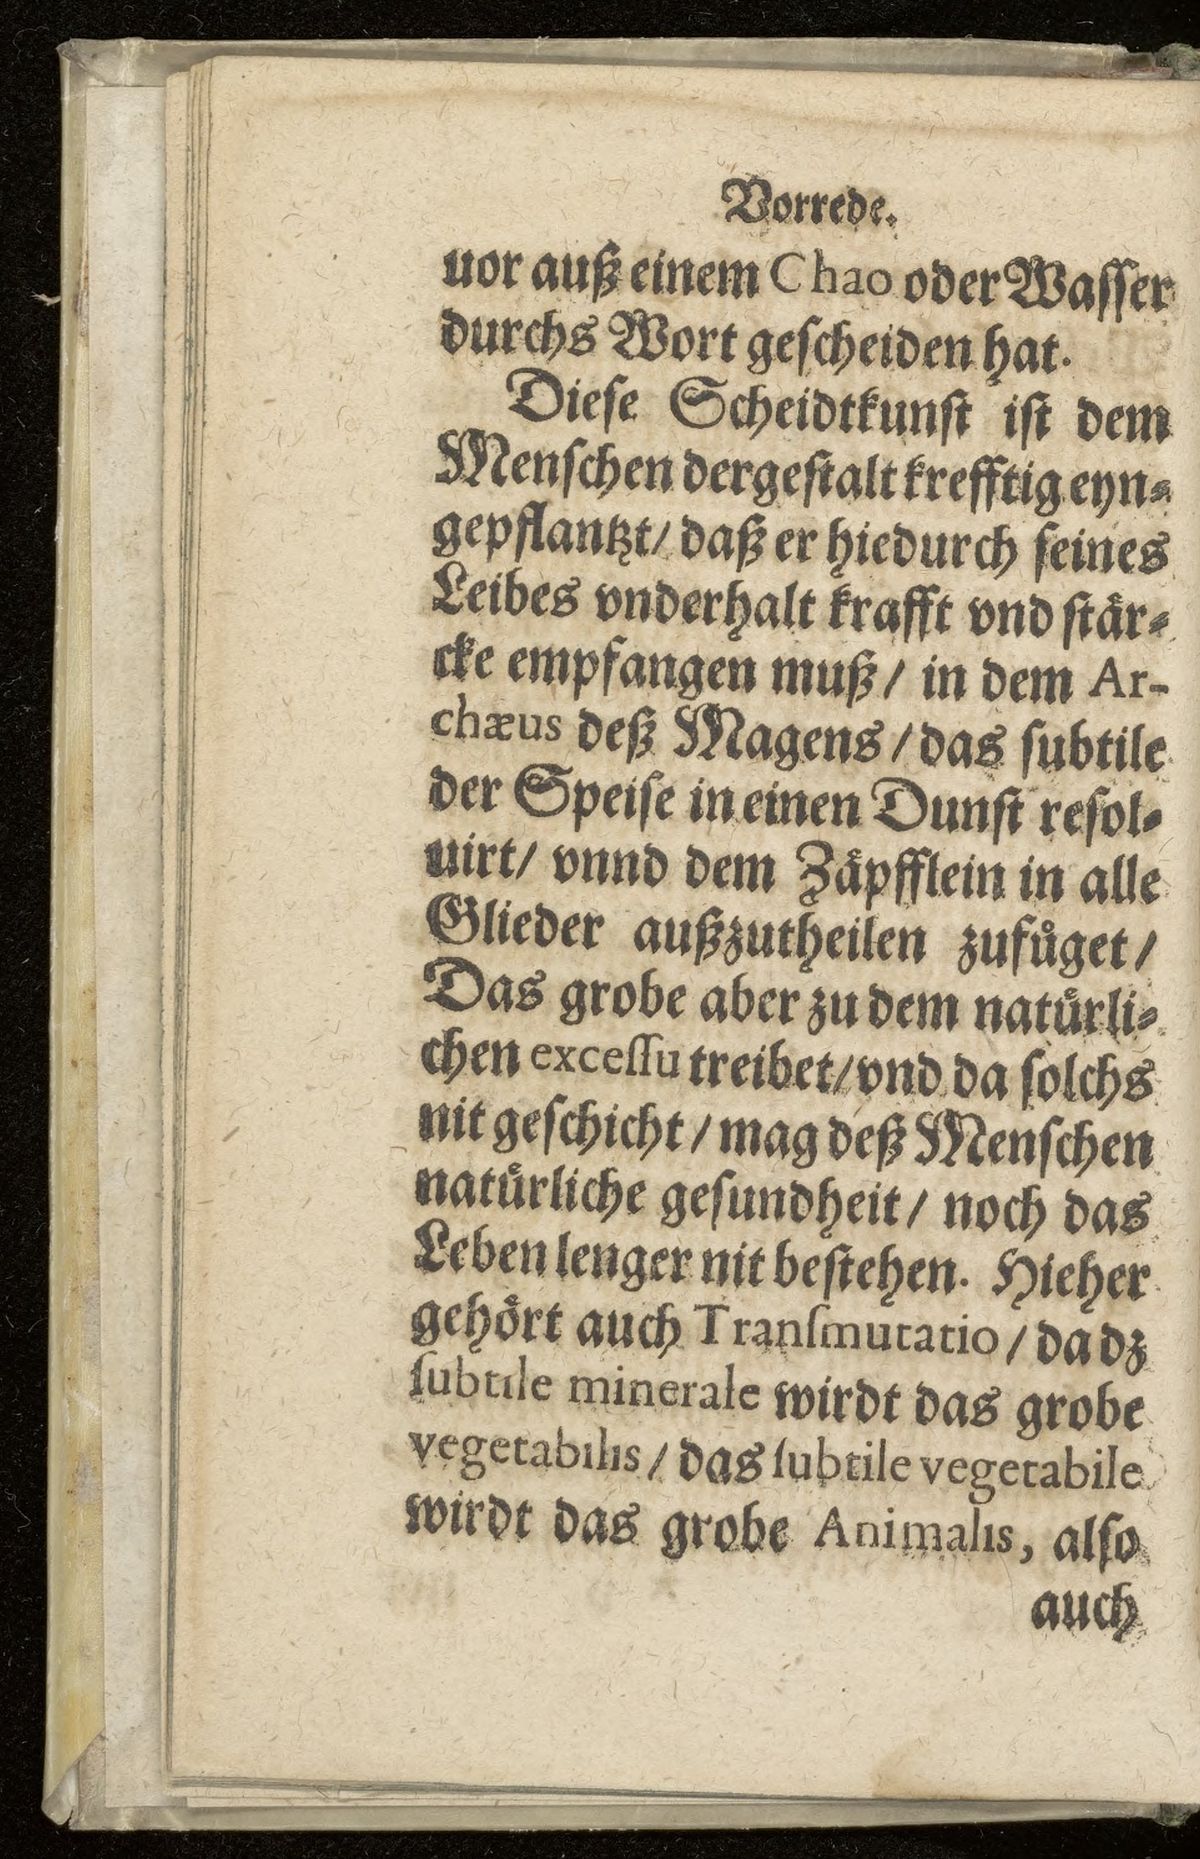 Vorrede.
uor auß einem Chao oder Waſſer
durchs Wort geſcheiden hat.
Dieſe Scheidtkunſt iſt dem
Menſchen dergeſtalt krefftig eyn⸗
gepflantzt/ daß er hiedurch ſeines
Leibes vnderhalt krafft vnd ſtaͤr⸗
cke empfangen muß/ in dem Ar-
chæus deß Magens/ das ſubtile
der Speiſe in einen Dunſt reſol⸗
uirt/ vnnd dem Zaͤpfflein in alle
Glieder außzutheilen zufuͤget/
Das grobe aber zu dem natuͤrli⸗
chen exceſſu treibet/ vnd da ſolchs
nit geſchicht/ mag deß Menſchen
natuͤrliche geſundheit/ noch das
Leben lenger nit beſtehen. Hieher
gehoͤrt auch Tranſmutatio/ da dz
ſubtile minerale wirdt das grobe
vegetabilis/ das ſubtile vegetabile
wirdt das grobe Animalis, alſo
auch